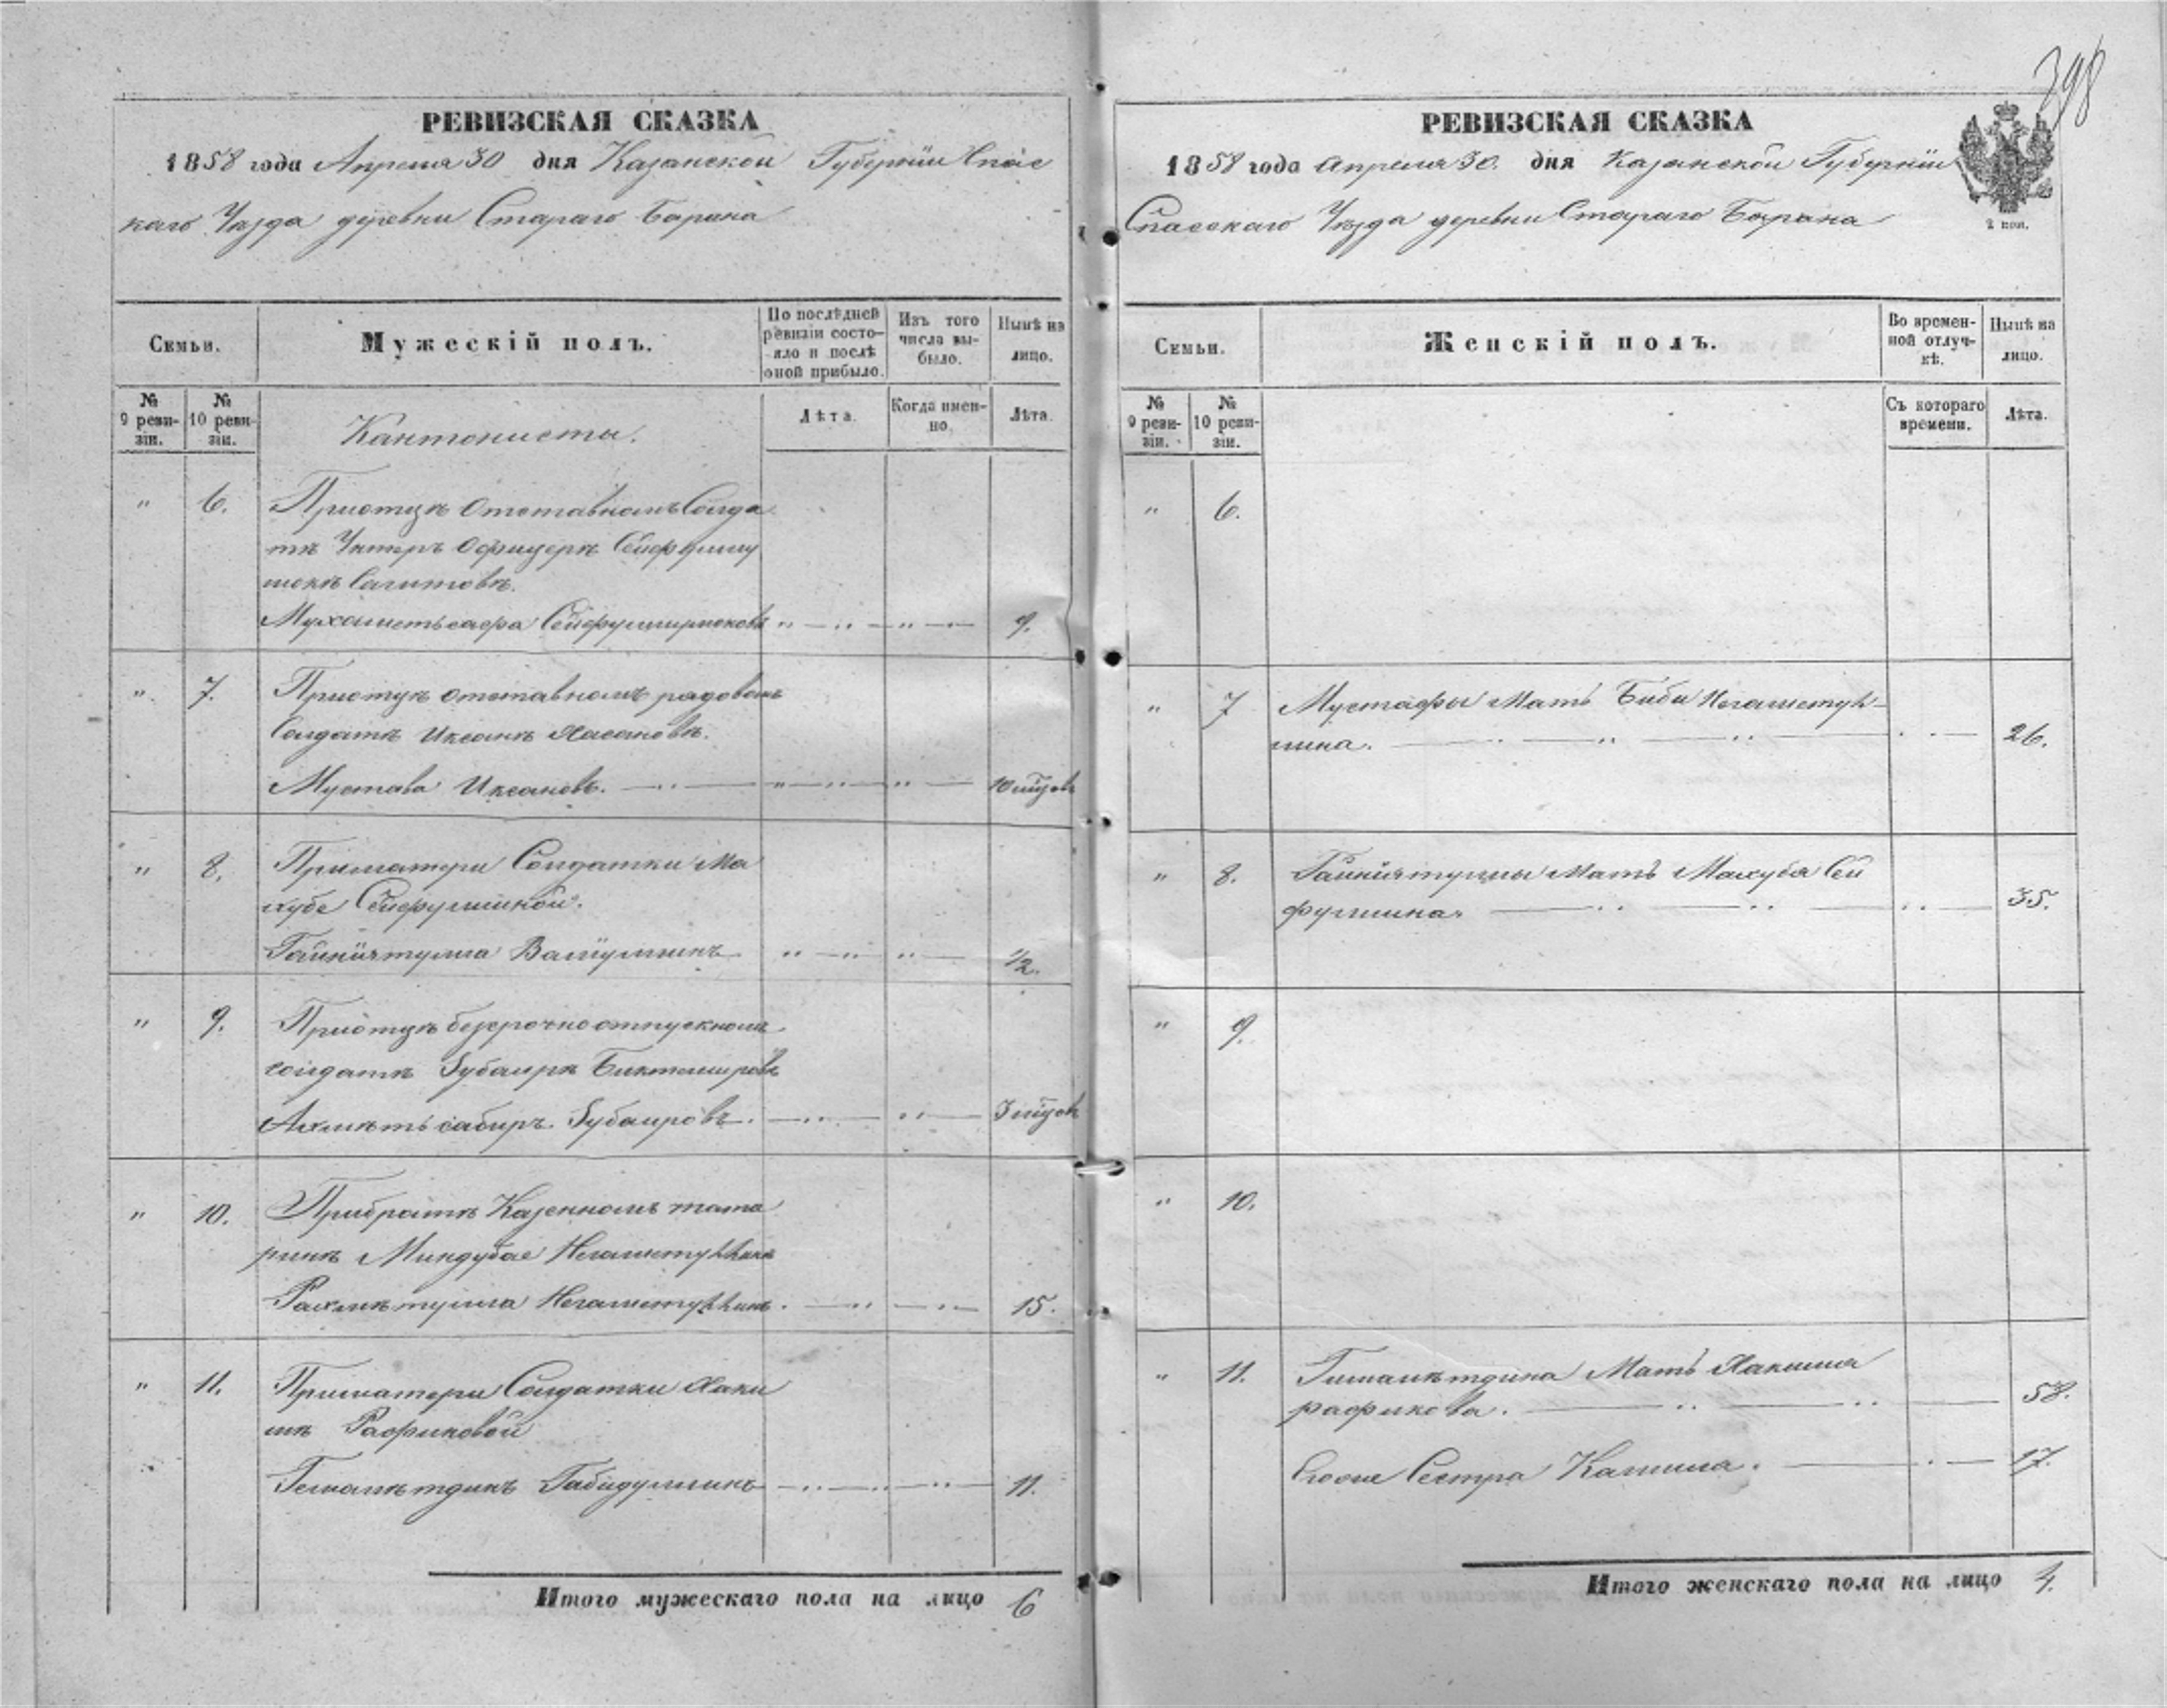 РЕВИЗСКАЯ СКАЗКА
1858 года Апреля 30 дня Казанской Губернiи Спас
каго Уѣзда деревни Стараго Барана
Семьи.
Мужескiй полъ.
По послѣдней ревизiи состо-яло и послѣ оной прибыло.
Изъ того числа вы-было.
Нынѣ на лицо.
№ 9 реви-зiи.
№ 10 реви-зiи.
Кантонисты.
Лѣта.
Когда имен-но.
Лѣта.
" 6. При отцѣ отставномъ Солда
тѣ Унтеръ Офицерѣ
Сагитовѣ.
9.
" 7. При отцѣ отставномъ рядовомъ
Солдатѣ Иксанѣ Хасановѣ.
Мустава Иксановъ. 10 мѣсяц
" 8. При матери Солдатки Ма
хубе Сейфуллиной.
Гайниятулла Валiуллинъ 1/2.
" 9. При отцѣ безсрочно отпускномъ
солдатѣ Зубаирѣ Биктемировѣ
Ахметь сабиръ Зубаировъ. 3 мѣсяц
" 10. При братѣ Казенномъ тата
ринѣ Миндубае
Рахметулла 15.
" 11. При матери Солдатки Хаки
мѣ Рафиковой
Гемалетдинъ Габидуллинъ 11.
Итого мужескаго пола на лицо 6
398
РЕВИЗСКАЯ СКАЗКА
1858 года Апреля 30. дня Казанской Губернiи
Спасскаго Уѣзда деревни Стараго Барана
2 коп.
Семьи.
Женскiй полъ.
Во времен-ной отлуч-кѣ.
Нынѣ на лицо.
№ 9 реви-зiи.
№ 10 реви-зiи.
Съ котораго времени.
Лѣта.
" 6.
" 7 Мустафы Мать Биби
26.
" 8. Гайниятуллы Мать Махубя Сей
фуллина. 35.
" 9.
" 10.
" 11. Гималетдина Мать Хакимя
рафикова. 58.
Егоже Сестра Камиля. 17.
Итого женскаго пола на лицо 4.